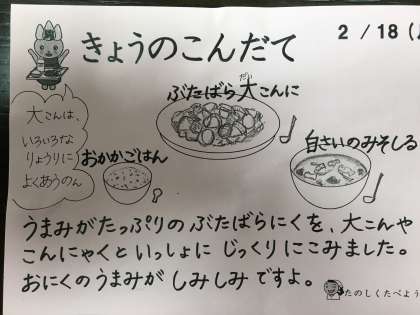 きょうのこんだて
2 / 18 (
ぶたばら大こんに
だい
大こんは、
いろいろな
りょうりに
よくあうのん
おかかごはん
白さいのみそしる
うまみがたっぷりのぶたばらにくを、大こんや
こんにゃくといっしょにじっくりにこみました。
おにくのうまみがしみしみですよ。
たのしくたべよう